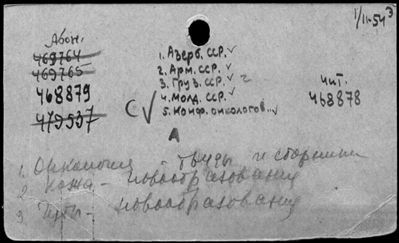 1/II-54 3
Абон.
469764
469765
468879
479537
1. Азерб. ССР. ✓
2. Арм. ССР. ✓
3. Груз. ССР. ✓ 2
4. Молд. ССР. ✓
5. Конф. онкологов.. ✓
С✓
А
чит.
468878
1. Онкология - труды и сборники
2. Кожа - новообразования
3. - новообразования